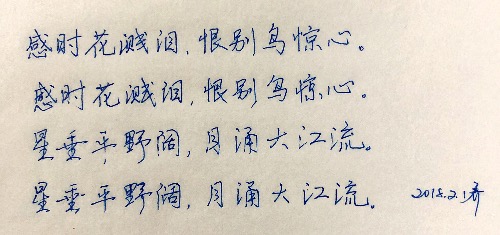 感时花溅泪，恨别鸟惊心。
感时花溅泪，恨别鸟惊心。
星垂平野阔，月涌大江流。
星垂平野阔，月涌大江流。 2018.2.1